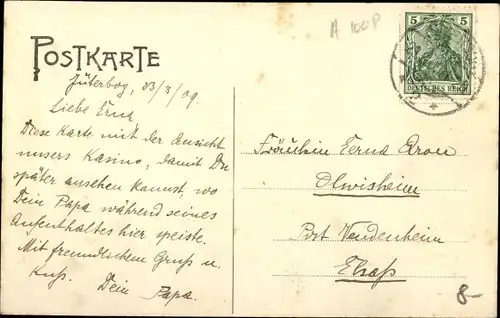 A 100 P
POSTKARTE
5 5
DEUTSCHES REICH
Jüterbog, 23/3/09.
Liebe Erna,
Diese Karte mit der Ansicht
unsers Kasino, damit Du
später ansehen kannst, wo
Dein Papa während seines
Aufenthaltes hier speiste.
Mit freundlichem Gruß u.
Kuß. Dein Papa.
Fräulein Erna
Olwisheim
Post Wendenheim
Elsaß
8-